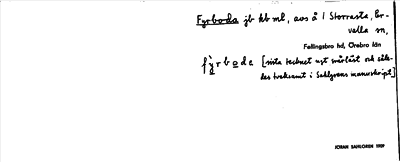 Fyrboda jb kb ml, aos å 1 Storrasta, Er-
valla sn,
Fellingsbro hd, Örebro län
fyrbode [sista tecknet ngt svårläst och såle-
des tveksamt i Sahlgrens manuskript]
JÖRAN SAHLGREN 1909